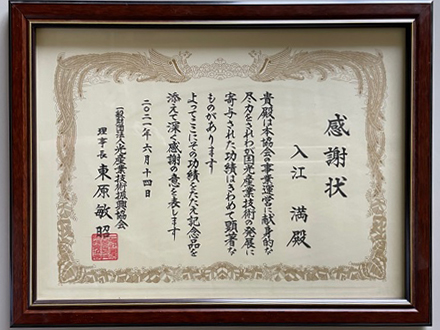 感謝状
入江 満 殿
貴殿は本協会の事業運営に献身的な
尽力をされわが国光産業技術の発展に
寄与された功績はきわめて顕著な
ものがあります
よってここにその功績をたたえ記念品を
添えて深く感謝の意を表します
二〇二一年六月十四日
一般財団法人光産業技術振興協会
理事長 東原敏昭